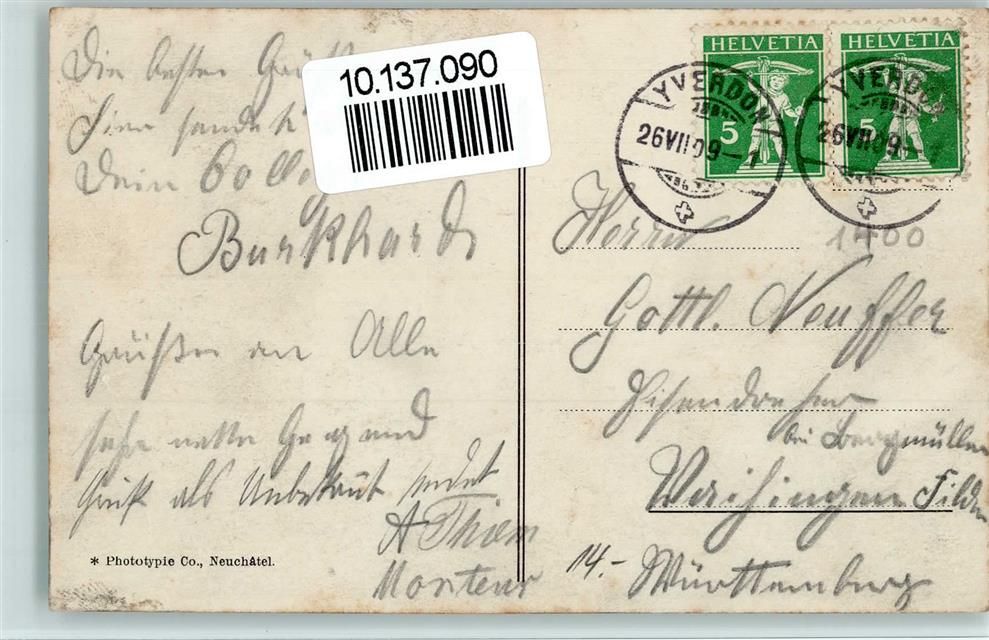 Die besten Grü
10.137.090
Hier sendet
Dein
Burkhardt
Grüßen an Alle
sehr nette Gegend
Gruß als Unbekannt sendet
A Thiem
Monteur
* Phototypie Co., Neuchâtel.
HELVETIA
5
HELVETIA
5
YVERDON
26 VII 09 - 1
YVERDON
26 VII 09 -
1400
Herrn
Gottl. Neuffer
Eisendreher
bei Bergmüller
Vaihingen Fildern
14.- Württemberg